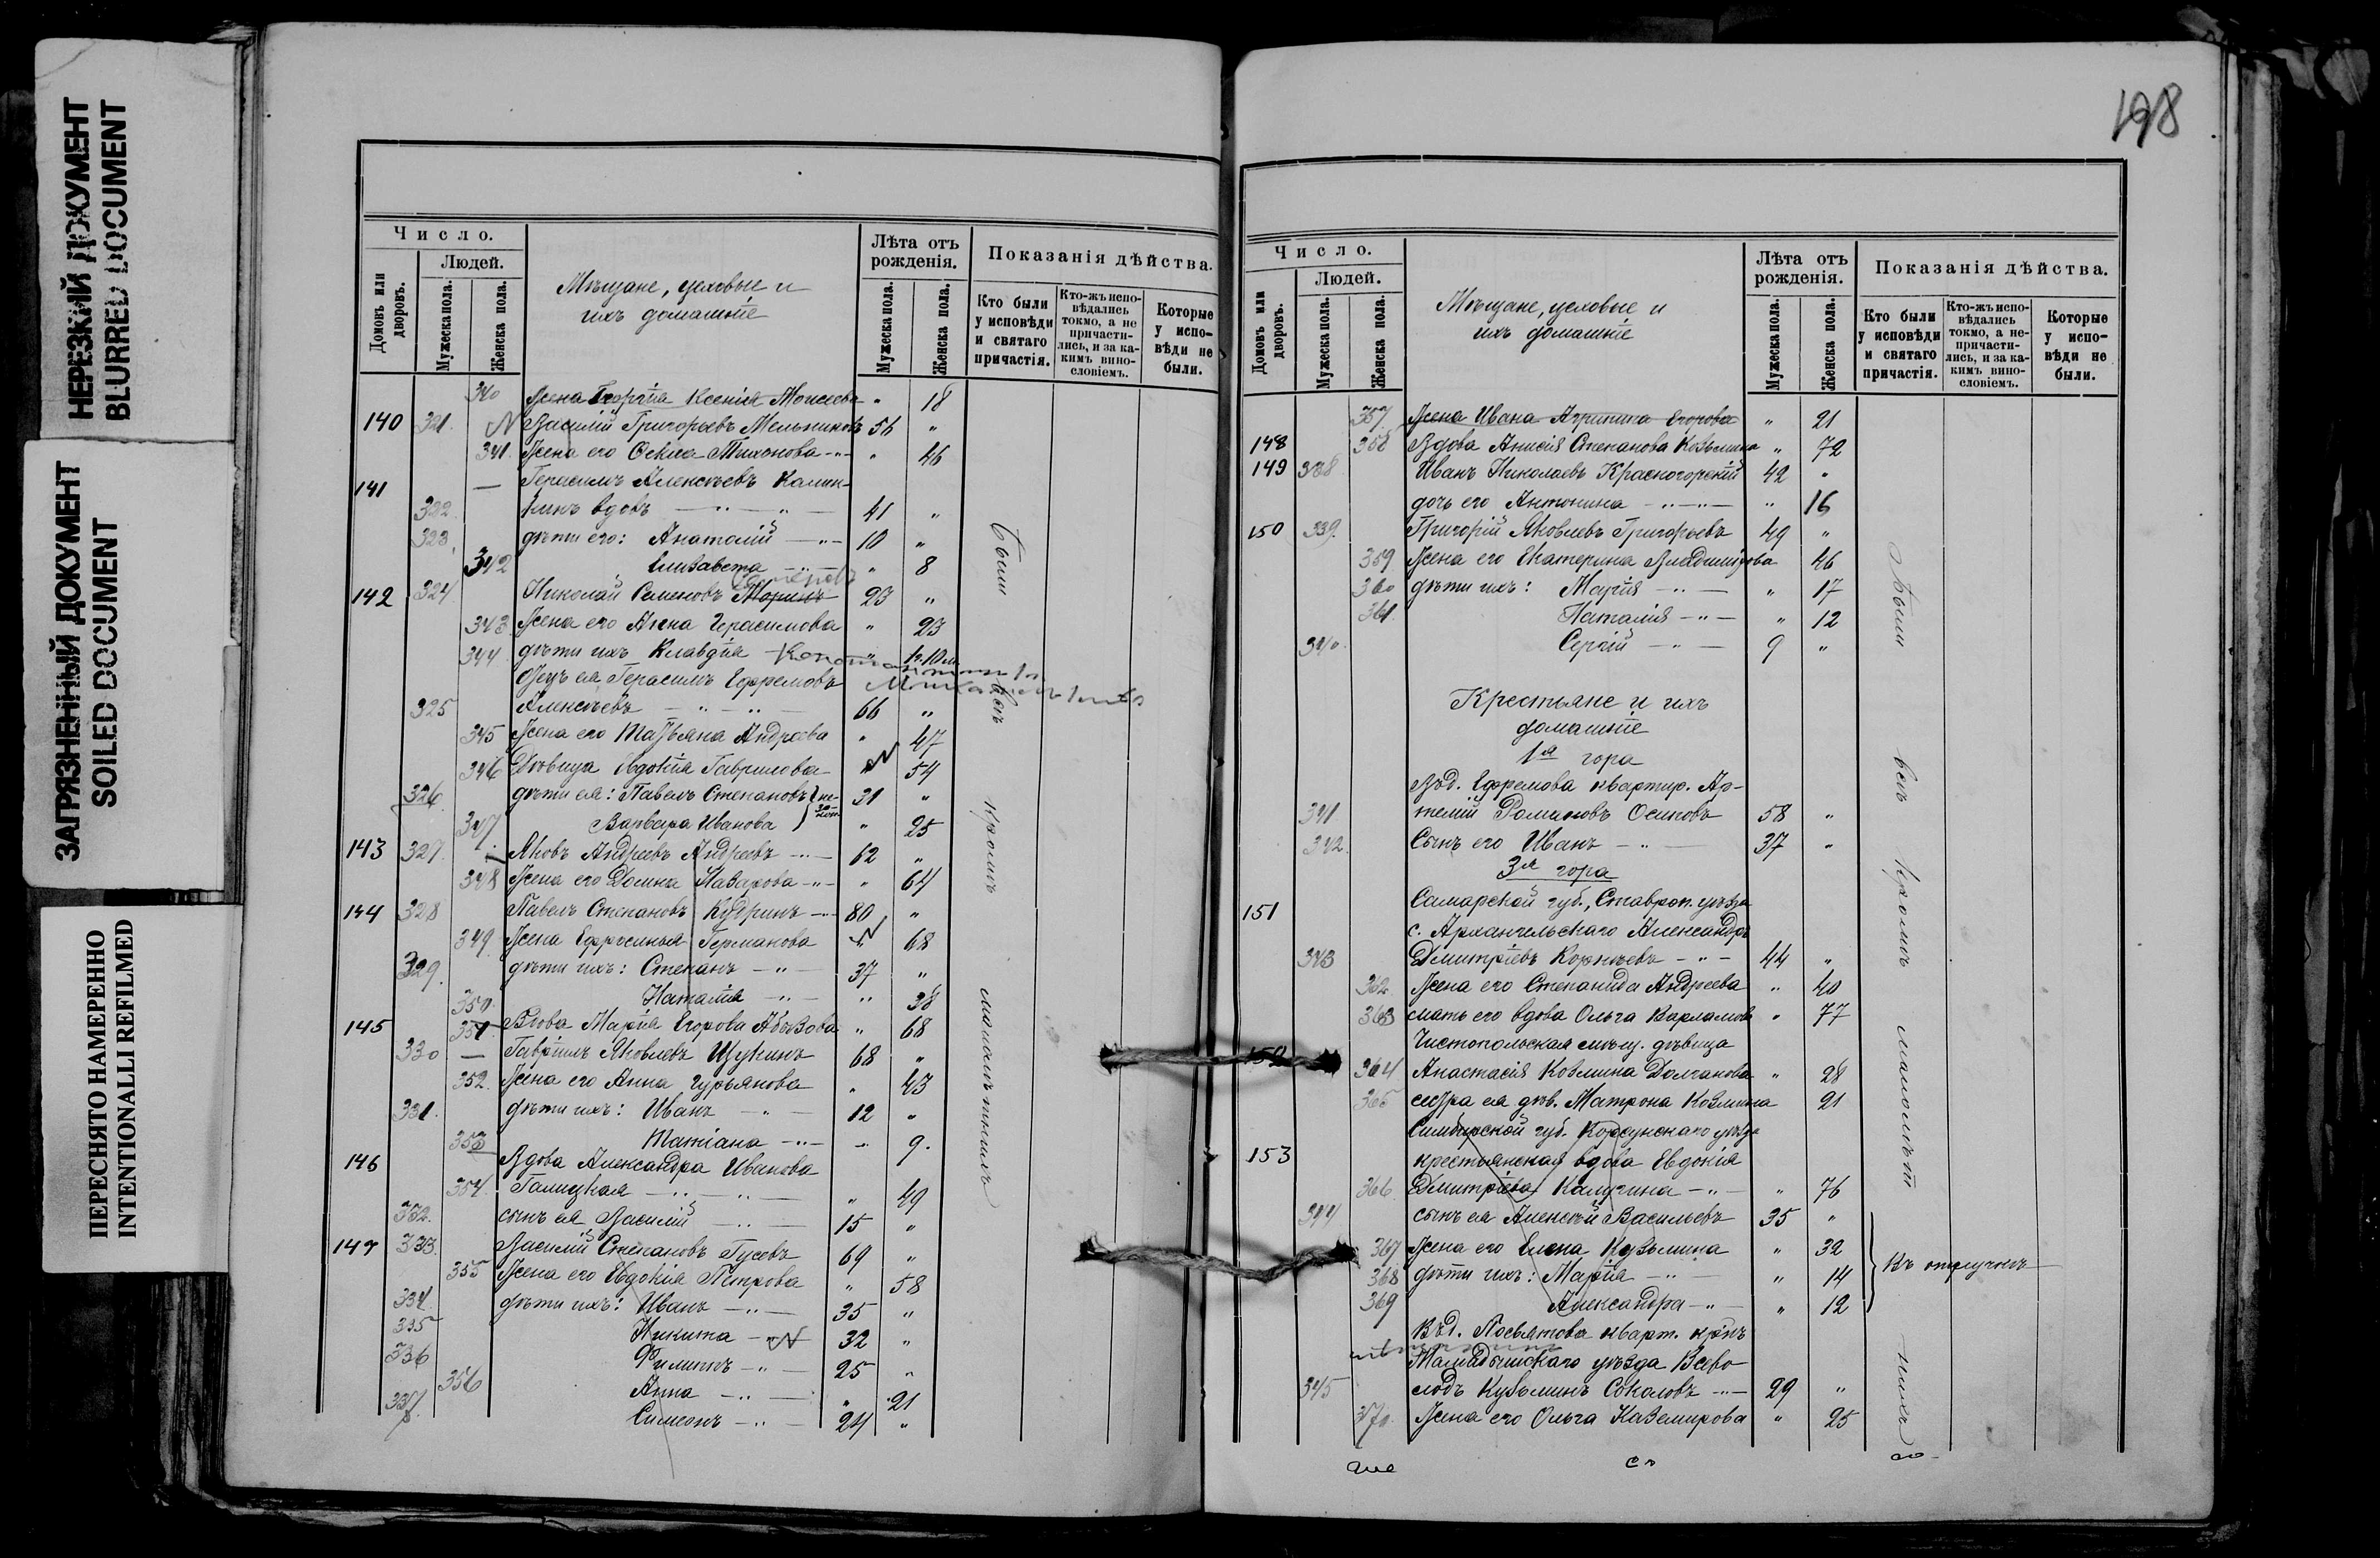 НЕРЕЗКИЙ ДОКУМЕНТ
BLURRED DOCUMENT
ЗАГРЯЗНЕННЫЙ ДОКУМЕНТ
SOILED DOCUMENT
ПЕРЕСНЯТО НАМЕРЕННО
INTENTIONALLI REFILMED
Число.
Людей.
Домовъ или дворовъ.
Мужеска пола.
Женска пола.
Мѣщане, цеховые и
ихъ домашніе
Лѣта отъ рожденія.
Мужеска пола.
Женска пола.
Показанія дѣйства.
Кто были у исповѣди и святаго причастія.
Кто-жъ исповѣдались токмо, а не причастились, и за какимъ винословіемъ.
Которые у исповѣди не были.
340 Жена Георгія Ксенія Моисеева " 18
140 321. Василій Григорьевъ Мельниковъ 56 "
341. Жена его Тихонова " 46
141 — Герасимъ Алексѣевъ Калин-
322. кинъ вдовъ 41 "
323. дѣти его: Анатолій 10 "
342 Елизавета " 8
142 324 Николай Семеновъ 23 "
343 Жена его Анна Герасимова " 23
344 дѣти ихъ Клавдія " 1г. 10м
Отецъ ея Герасимъ Ефремовъ
325 Алексѣевъ 66 "
345 Жена его Татьяна Андреева " 47
346 Дѣвица Евдокія Гаврилова " 54
326 дѣти ея: Павелъ Степановъ 31 "
347 Варвара Иванова " 25
143 327 Яковъ Андреевъ Андреевъ 62 "
348 Жена его Домна Назарова " 64
144 328 Павелъ Степановъ Кудринъ 80 "
349 Жена Ефросинья Германова 68
329. дѣти ихъ: Степанъ 37 "
350. Наталія " 38
145 351. Вдова Марія Егорова " 68
330 — Гавріилъ Яковлевъ Щукинъ 68 "
352. Жена его Анна Гурьянова " 43
331. дѣти ихъ: Иванъ 12 "
353 Татіана " 9.
146 Вдова Александра Иванова
354 Галицкая " 49
332. сынъ ея Василій 15 "
147 333. Василій Степановъ Гусевъ 69 "
355 Жена его Евдокія Петрова " 58
334. дѣти ихъ: Иванъ 35 "
335 Никита 32 "
336 Филиппъ 25 "
356 Анна " 21
337. Симеонъ 24 "
Были всѣ кромѣ малолѣтнихъ
198
Число.
Людей.
Домовъ или дворовъ.
Мужеска пола.
Женска пола.
Мѣщане, цеховые и
ихъ домашніе
Лѣта отъ рожденія.
Мужеска пола.
Женска пола.
Показанія дѣйства.
Кто были у исповѣди и святаго причастія.
Кто-жъ исповѣдались токмо, а непричастились, и за какимъ винословіемъ.
Которые у исповѣди не были.
357. Жена Ивана Агрипина Егорова " 21
148 358 Вдова Анисія Степанова Козьмина " 72
149 338 Иванъ Николаевъ Красногорскій 42 "
дочь его Антонина " 16
150 339. Григорій Яковлевъ Григорьевъ 49 "
359 Жена его Екатерина Владимірова 46
360 дѣти ихъ: Марія " 17
361. Наталія " 12
340. Сергій 9 "
Крестьяне и ихъ
домашніе
1я гора
Вѣд. Ефремова квартир. Ар-
341 темій Осиповъ 58 "
342. Сынъ его Иванъ 37 "
3я гора
151 Самарской губ., Ставроп. уѣзда
с. Архангельскаго Александръ
343 Дмитріевъ Корнѣевъ 44 "
362. Жена его Степанида Андреева " 40
363 мать его вдова Ольга Варламова " 77
152 Чистопольская мѣщ. дѣвица
364 Анастасія Козмина Долганова " 28
365 сестра ея дѣв. Матрона Козмина 21
Симбирской губ. Корсунскаго уѣзда
153 крестьянская вдова Евдокія
366. Дмитріева Калугина " 76
344 сынъ ея Алексѣй Васильевъ 35 "
367 Жена его Елена Кузьмина " 32
368 дѣти ихъ: Марія " 14
369 Александра " 12
Въ отлучкѣ
Вѣд. кварт. кр-нъ
Мамадышскаго уѣзда Всево-
345 лодъ Кузьминъ Соколовъ 29 "
370. Жена его Ольга Каземирова " 25
Были всѣ кромѣ малолѣтнихъ